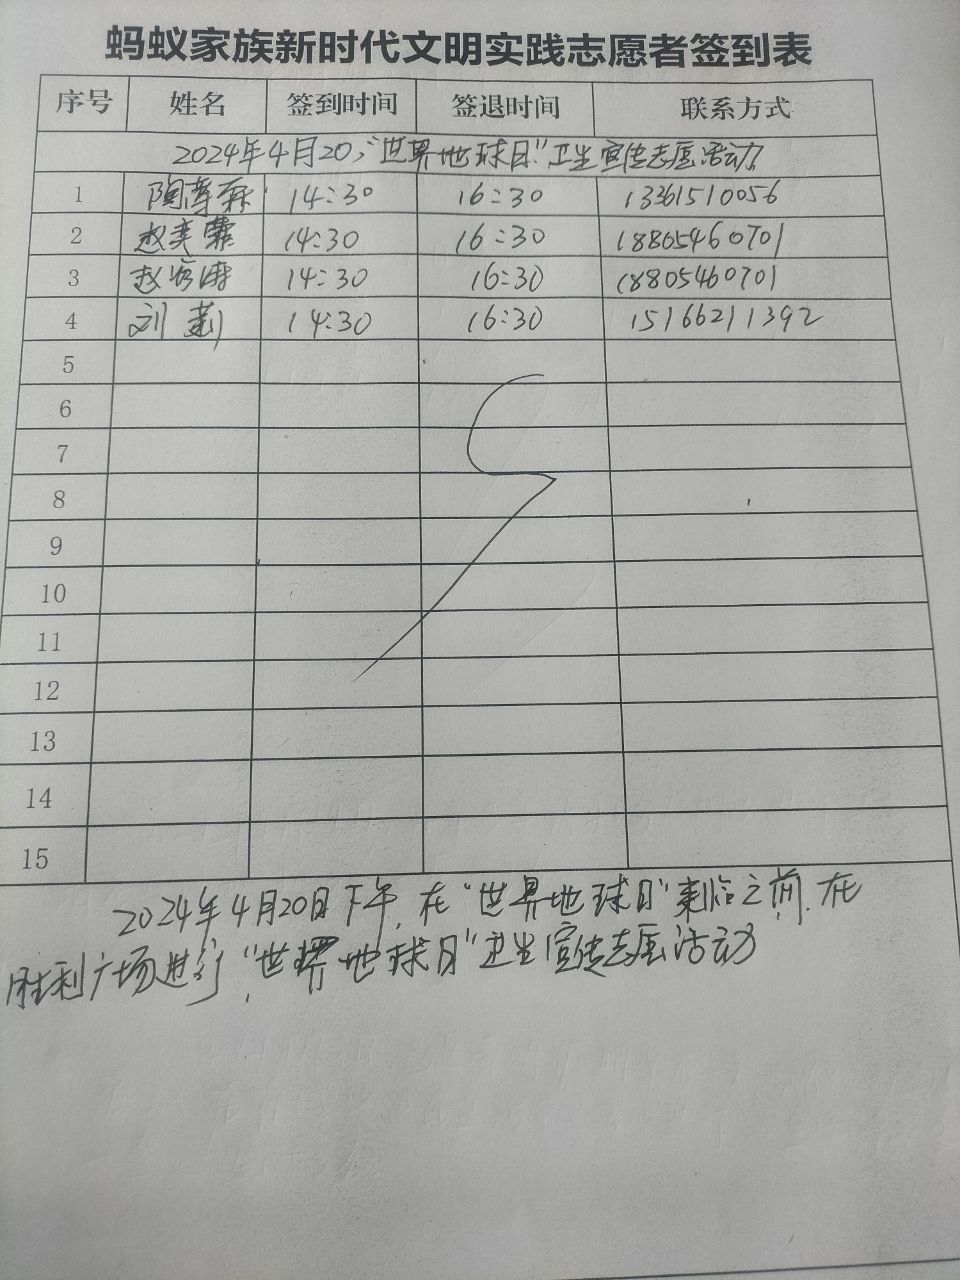 蚂蚁家族新时代文明实践志愿者签到表
序号 姓名 签到时间 签退时间 联系方式
2024年4月20, "世界地球日"卫生宣传志愿活动
1 14:30 16:30 13361510056
2 赵奕霏 14:30 16:30 18805460701
3 赵 14:30 16:30 18805460701
4 刘莉 14:30 16:30 15166211392
5
6
7
8
9
10
11
12
13
14
15
2024年4月20日下午, 在"世界地球日"来临之前, 在
胜利广场进行, "世界地球日"卫生宣传志愿活动